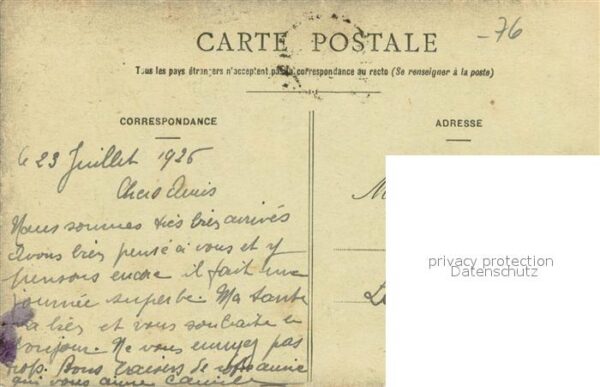 -76
CARTE POSTALE
Tous les pays étrangers n'acceptent pas la correspondance au recto (Se renseigner à la poste)
CORRESPONDANCE
ADRESSE
le 23 Juillet 1926
Chers Amis
Nous sommes très bien arrivés
Avons bien pensé à vous et y
pensons encore il fait une
journée superbe. Ma tante
va bien et vous souhaite le
bonjour. Ne vous ennuyez pas
trop. Bons baisers de votre amie
qui vous aime Camille
M
privacy protection
Datenschutz